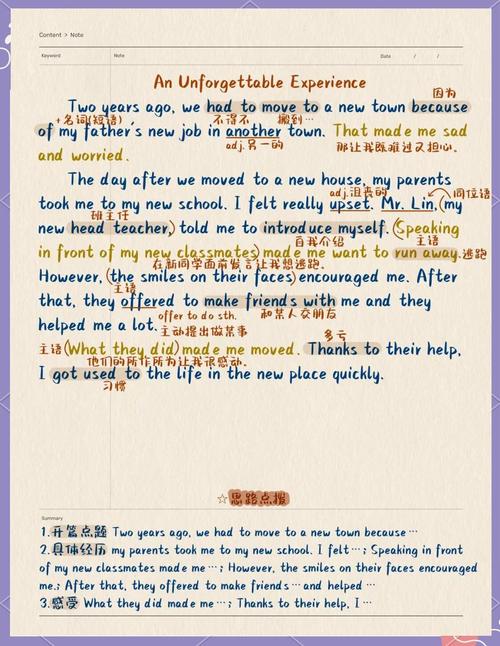 Content > Note
Keyword Note Date / /
An Unforgettable Experience
因为
Two years ago, we had to move to a new town because
+名词(短语) 不得不 搬到…
of my father's new job in another town. That made me sad
adj.另一的 那让我既难过又担心.
and worried.
The day after we moved to a new house, my parents
adj.沮丧的 同位语
took me to my new school. I felt really upset. Mr. Lin, (my
班主任
new head teacher,) told me to introduce myself. (Speaking
自我介绍 主语
in front of my new classmates) made me want to run away. 逃跑
在新同学面前发言让我想逃跑.
However, (the smiles on their faces) encouraged me. After
主语
that, they offered to make friends with me and they
offer to do sth. 和某人交朋友
helped me a lot. 主动提出做某事
多亏
主语 (What they did) made me moved. Thanks to their help,
他们的所作所为让我很感动.
I got used to the life in the new place quickly.
习惯
☆思路点拨
Summary
1.开篇点题 Two years ago, we had to move to a new town because…
2.具体经历 my parents took me to my new school. I felt…; Speaking in front
of my new classmates made me…; However, the smiles on their faces encouraged
me.; After that, they offered to make friends…and helped…
3.感受 What they did made me…; Thanks to their help, I…